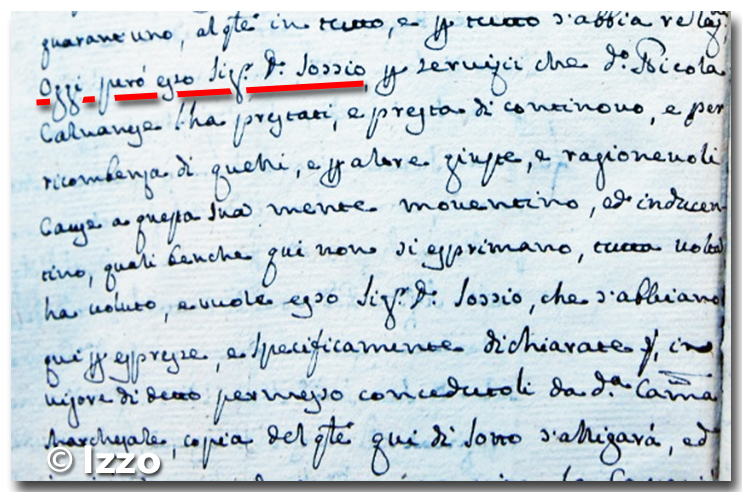 quarant'uno, al qle in tutto, e p tutto s'abbia relaz.
Oggi però esso Sigr. Dn. Sossio, p servizij che Dn. Nicola
l'ha prestati, e presta di continovo, e per
ricombenza di quelli, e p altre giuste, e ragionevoli
Cause a questa sua mente moventino, ed inducen-
tino, quali benche qui non si esprimano, tutta volta
ha voluto, e vuole esso Sigr. Dn. Sossio, che s'abbiano
qui p espresse, e specificamente dichiarate, in
vigore di detto permesso concedutoli da da. Camra
Marchesale, copia del qle qui di sotto s'alligarà, ed
© Izzo